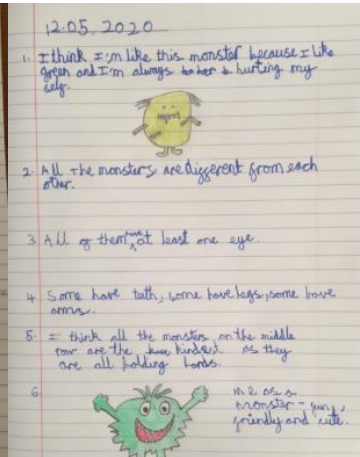 12.05.2020
1. I think I'm like this monster because I like
green and I'm always hurting my
self.
2. All the monsters are different from each
other.
3 All of them have at least one eye.
4 Some have teth, some have legs, some have
arms.
5. I think all the monsters on the middle
row are the kindest as they
are all holding hands.
6.
me as a
monster - funy,
friendly and cute.